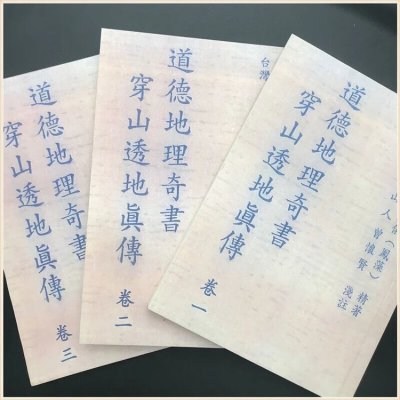 台(鳳藻)精著
山人曾懷賢淺註
道德地理奇書
穿山透地眞傳
卷一
台灣
道德地理奇書
穿山透地眞傳
卷二
道德地理奇書
穿山透地眞傳
卷三